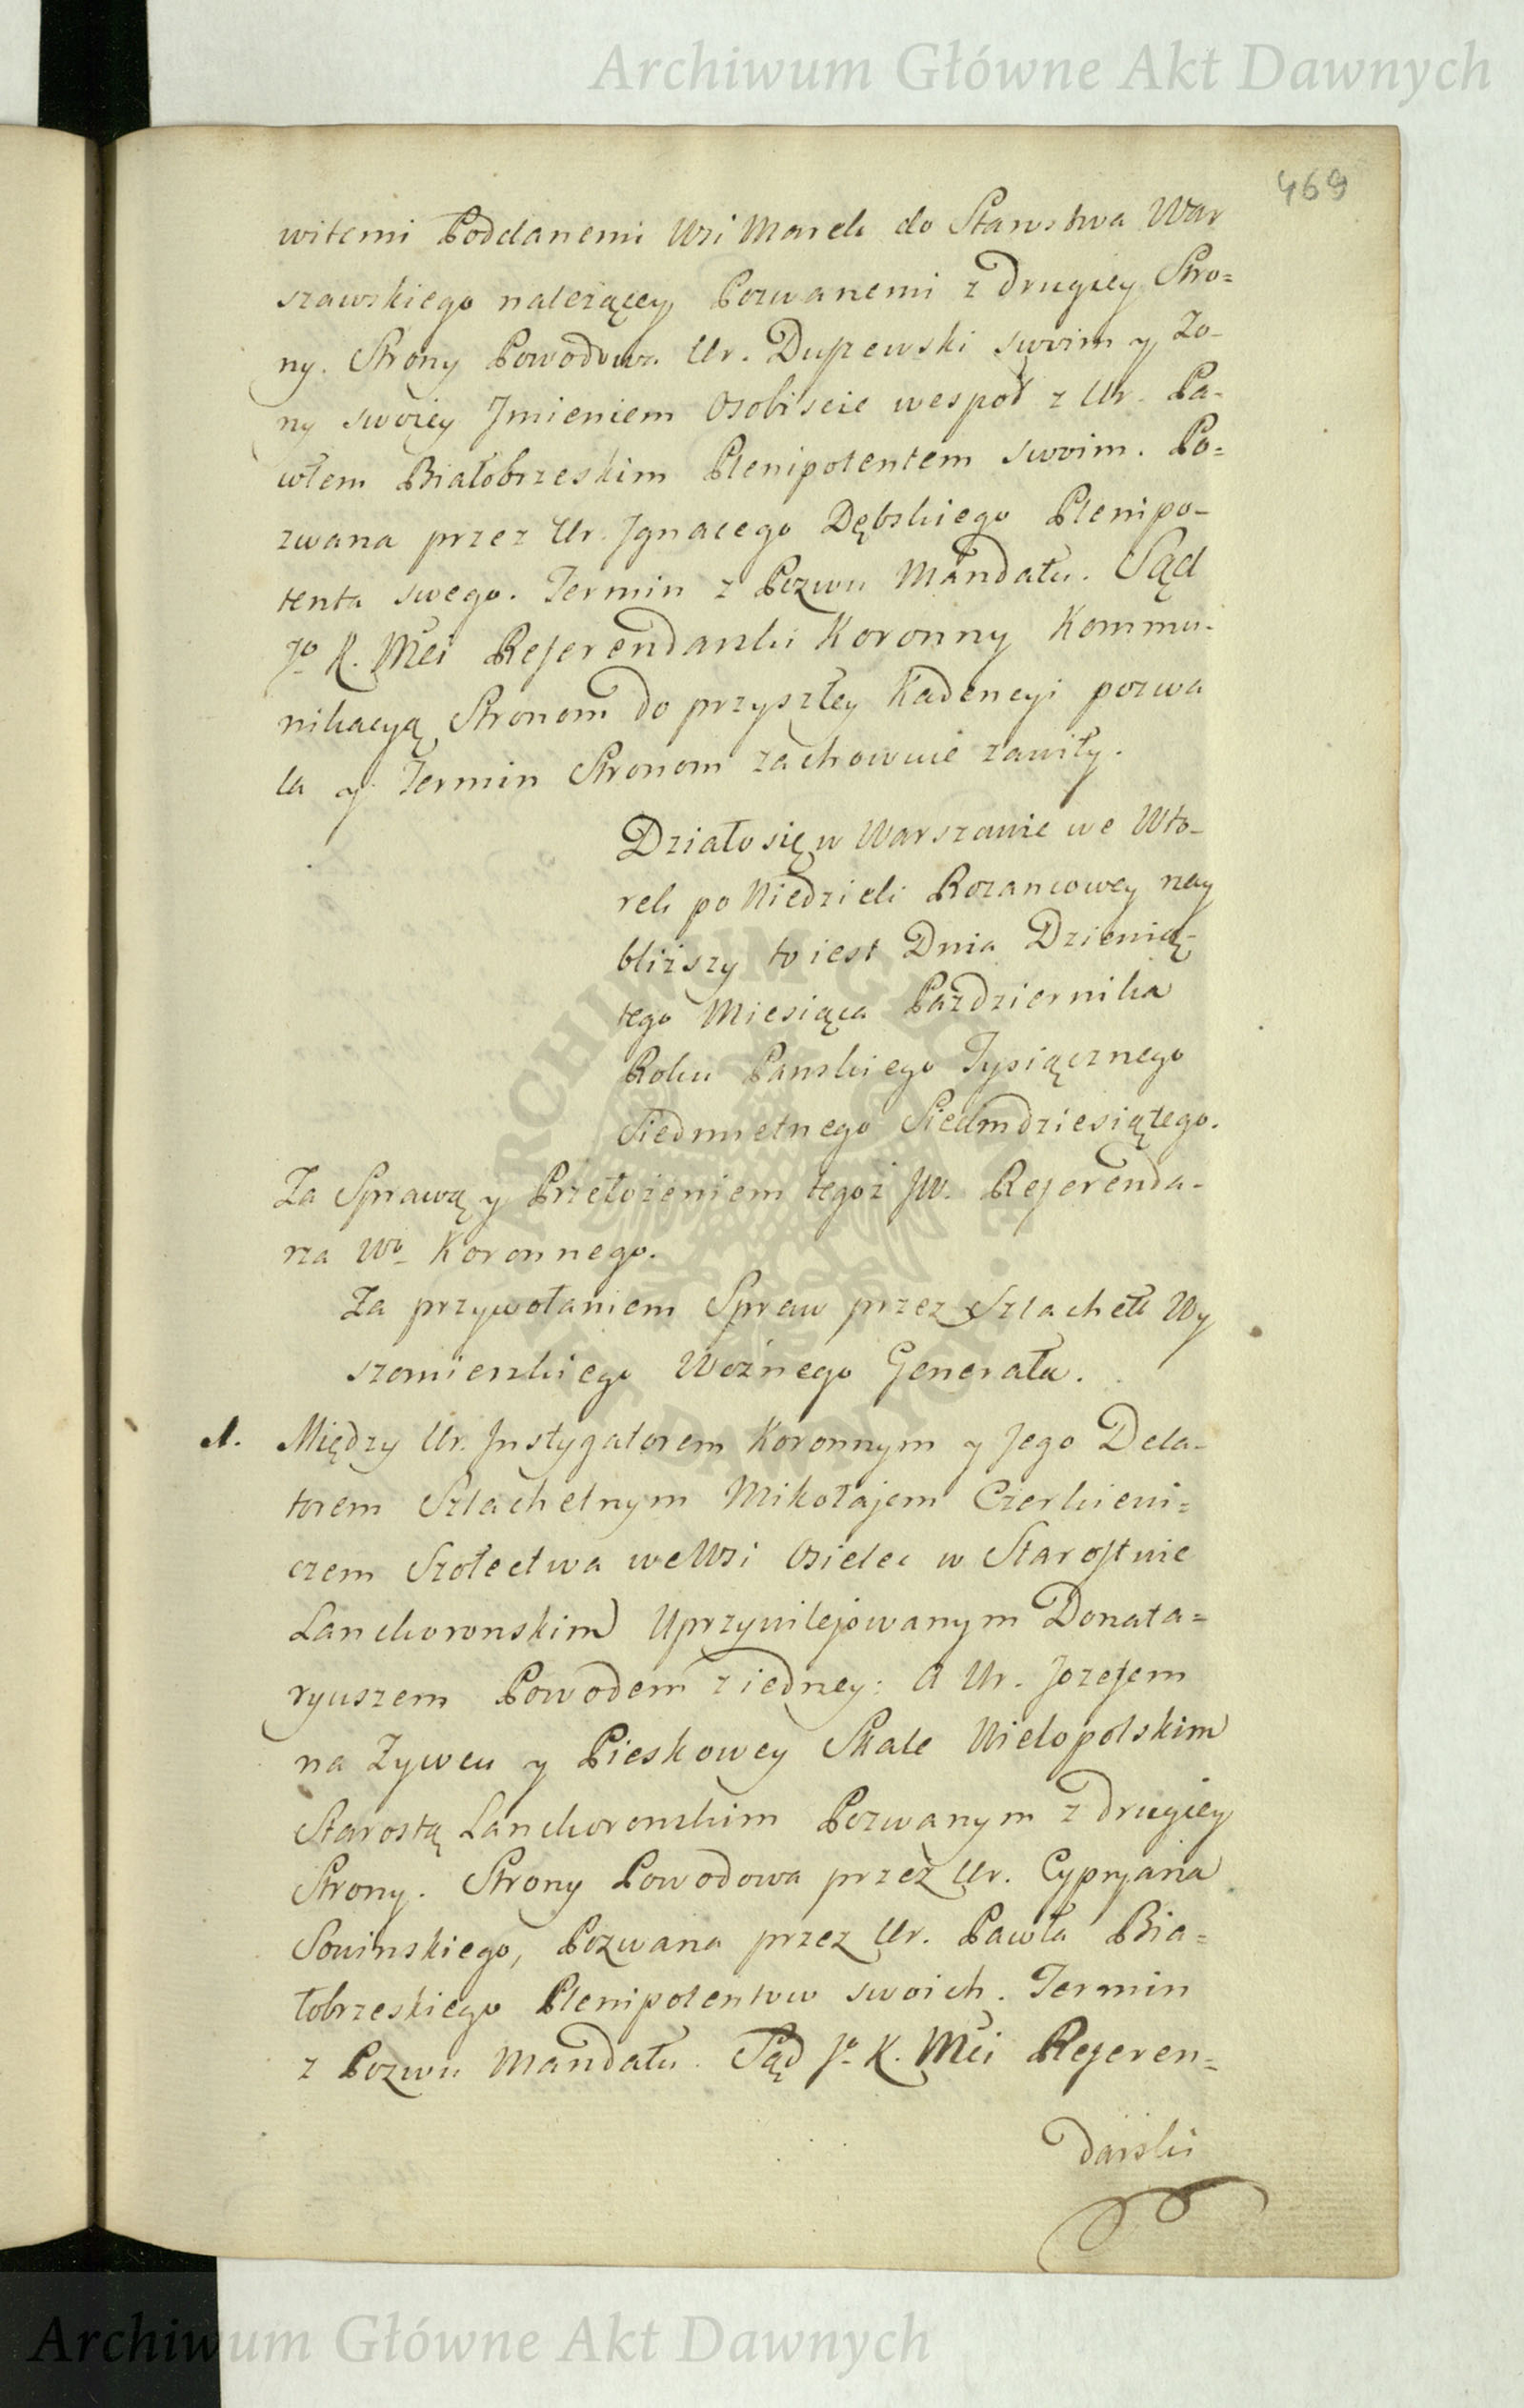 Archiwum Główne Akt Dawnych
469
witemi Poddanemi Wsi Marek do Starostwa War
szawskiego należącey Pozwanemi z drugiey Stro=
ny. Strony Powodowa Ur. Dupzewski swoim y Żo-
ny swoiey Jmieniem Osobiscie wespoł z Ur. Pa-
włem Białobrzeskim Plenipotentem swoim. Po=
zwana przez Ur. Jgnacego Dębskiego Plenipo-
tenta swego. Termin z Pozwu Mandatu. Sąd
Jo K. Mci Referendarski Koronny Kommu-
nikacyą Stronom do przyszłey Kadencyi pozwa
la y Termin Stronom zachowuie zawity.
Działo się w Warszawie we Wto-
rek po Niedzieli Rozancowey nay
bliższy to iest Dnia Dziewią-
tego Miesiąca Pazdziernika
Roku Panskiego Tysiącznego
Siedmsetnego Siedmdziesiątego.
Za Sprawą y Przełożeniem tegoż JW. Referenda-
rza Wo Koronnego.
Za przywołaniem Spraw przez Szlachett Wy
szomierskiego Woźnego Generała.
1. Między Ur. Jnstygatorem Koronnym y Jego Dela-
torem Szlachetnym Mikołajem Czerkiewi=
czem Szołectwa we Wsi Osielec w Starostwie
Lanckoronskim Uprzywilejowanym Donata=
ryuszem Powodem z iedney: A Ur. Jozefem
na Zywcu y Pieskowey Skale Wielopolskim
Starostą Lanckoronskim Pozwanym z drugiey
Strony. Strony Powodowa przez Ur. Cypryana
Sowinskiego, Pozwana przez Ur. Pawła Bia=
łobrzeskiego Plenipotentow swoich. Termin
z Pozwu Mandatu. Sąd Jo K. Mci Referen=
darski
ARCHIWUM GŁÓWNE AKT DAWNYCH
Archiwum Główne Akt Dawnych